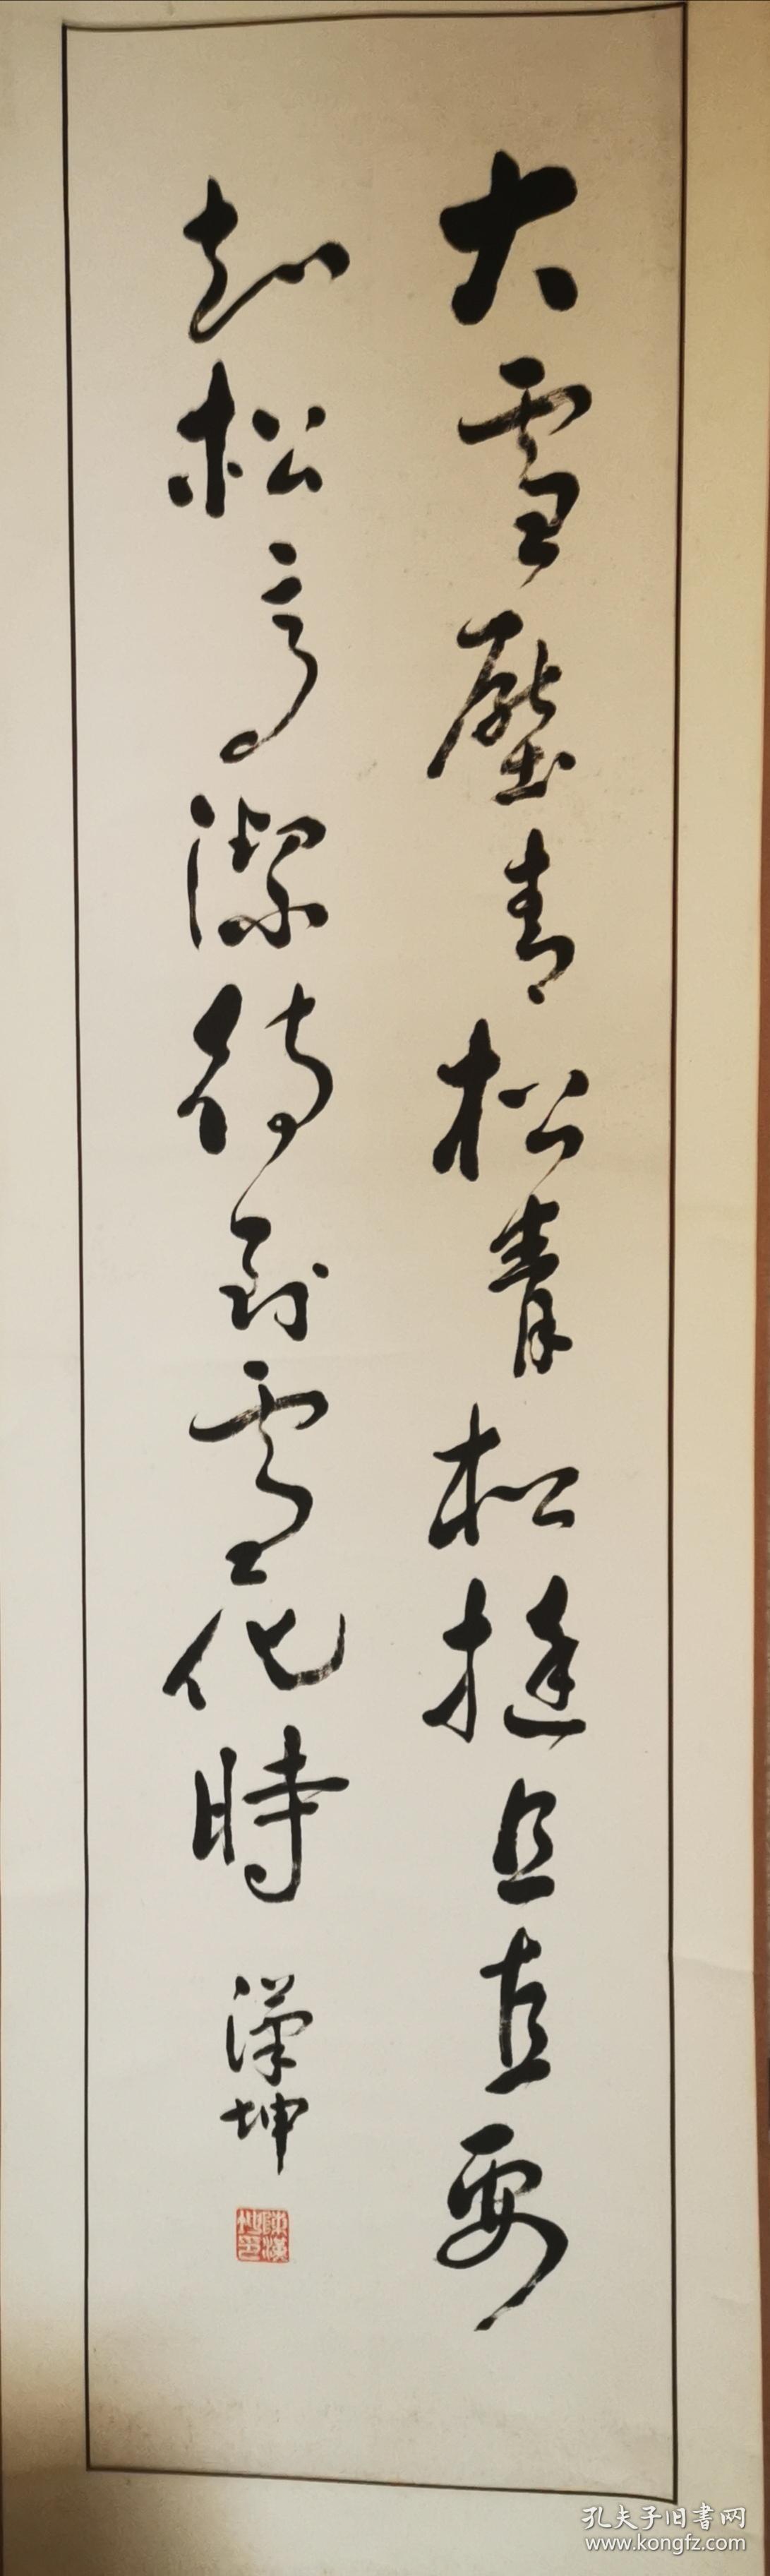 大雪壓青松青松挺且直要
知松高潔待到雪化時
漢坤
陳漢坤印
孔夫子旧书网
www.kongfz.com